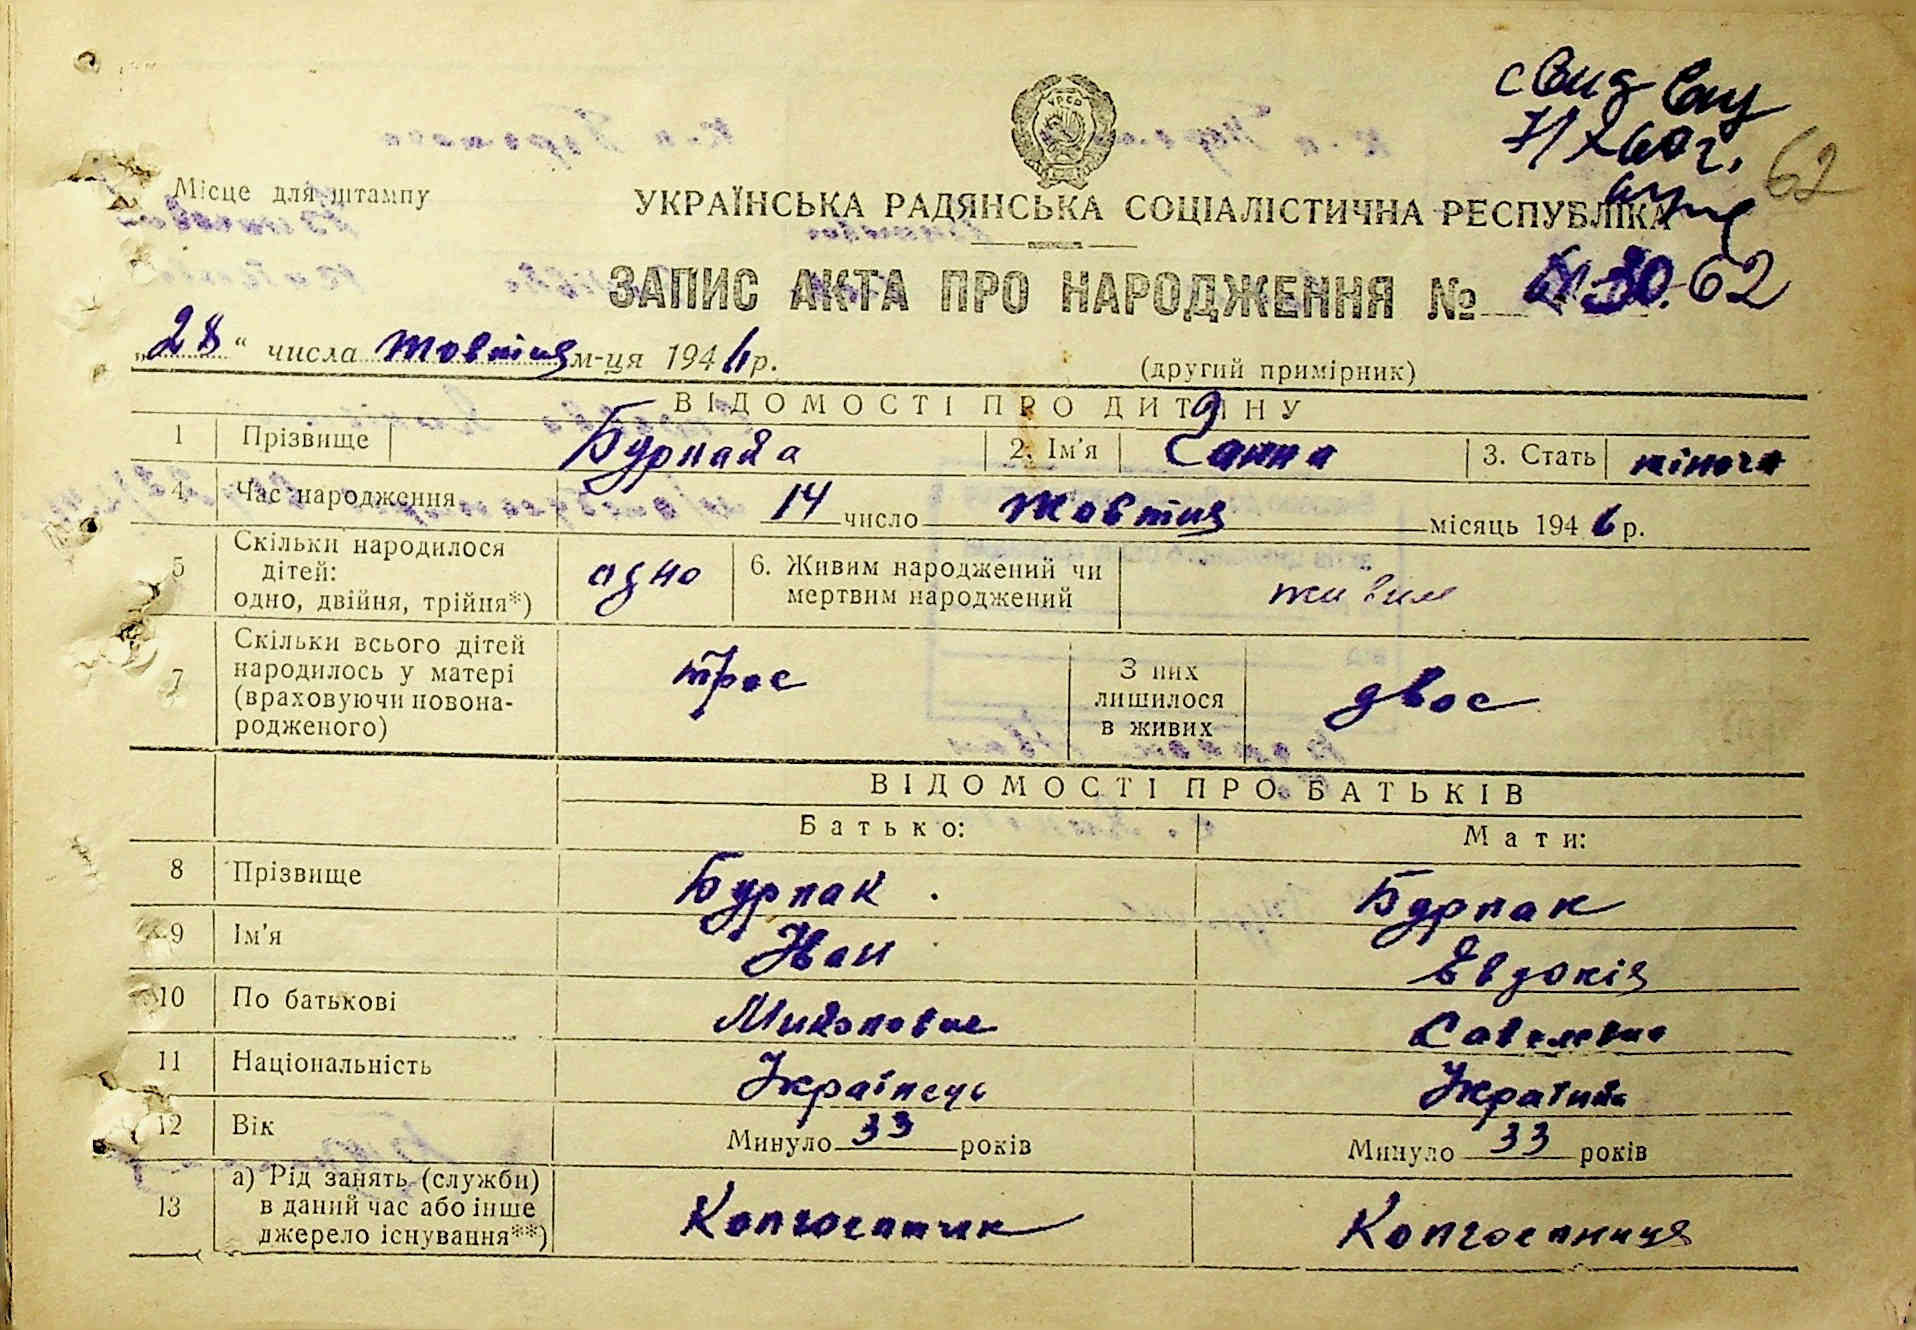 свид выд
62
Місце для штампу
УКРАЇНСЬКА РАДЯНСЬКА СОЦІАЛІСТИЧНА РЕСПУБЛІКА
ЗАПИС АКТА ПРО НАРОДЖЕННЯ № 62
„28“ числа жовтня м-ця 1946 р.
(другий примірник)
ВІДОМОСТІ ПРО ДИТИНУ
1 Прізвище 2. Ім'я Ганна 3. Стать жіноча
4 Час народження 14 число жовтня місяць 1946 р.
5 Скільки народилося дітей: одно, двійня, трійня*) одно 6. Живим народжений чи мертвим народжений живим
7 Скільки всього дітей народилось у матері (враховуючи новонародженого) троє З них лишилося в живих двоє
ВІДОМОСТІ ПРО БАТЬКІВ
Батько: Мати:
8 Прізвище Бурлак Бурлак
9 Ім'я Іван Євдокія
10 По батькові
11 Національність Українець Українка
12 Вік Минуло 33 років Минуло 33 років
13 а) Рід занять (служби) в даний час або інше джерело існування**) Колгоспник Колгоспниця